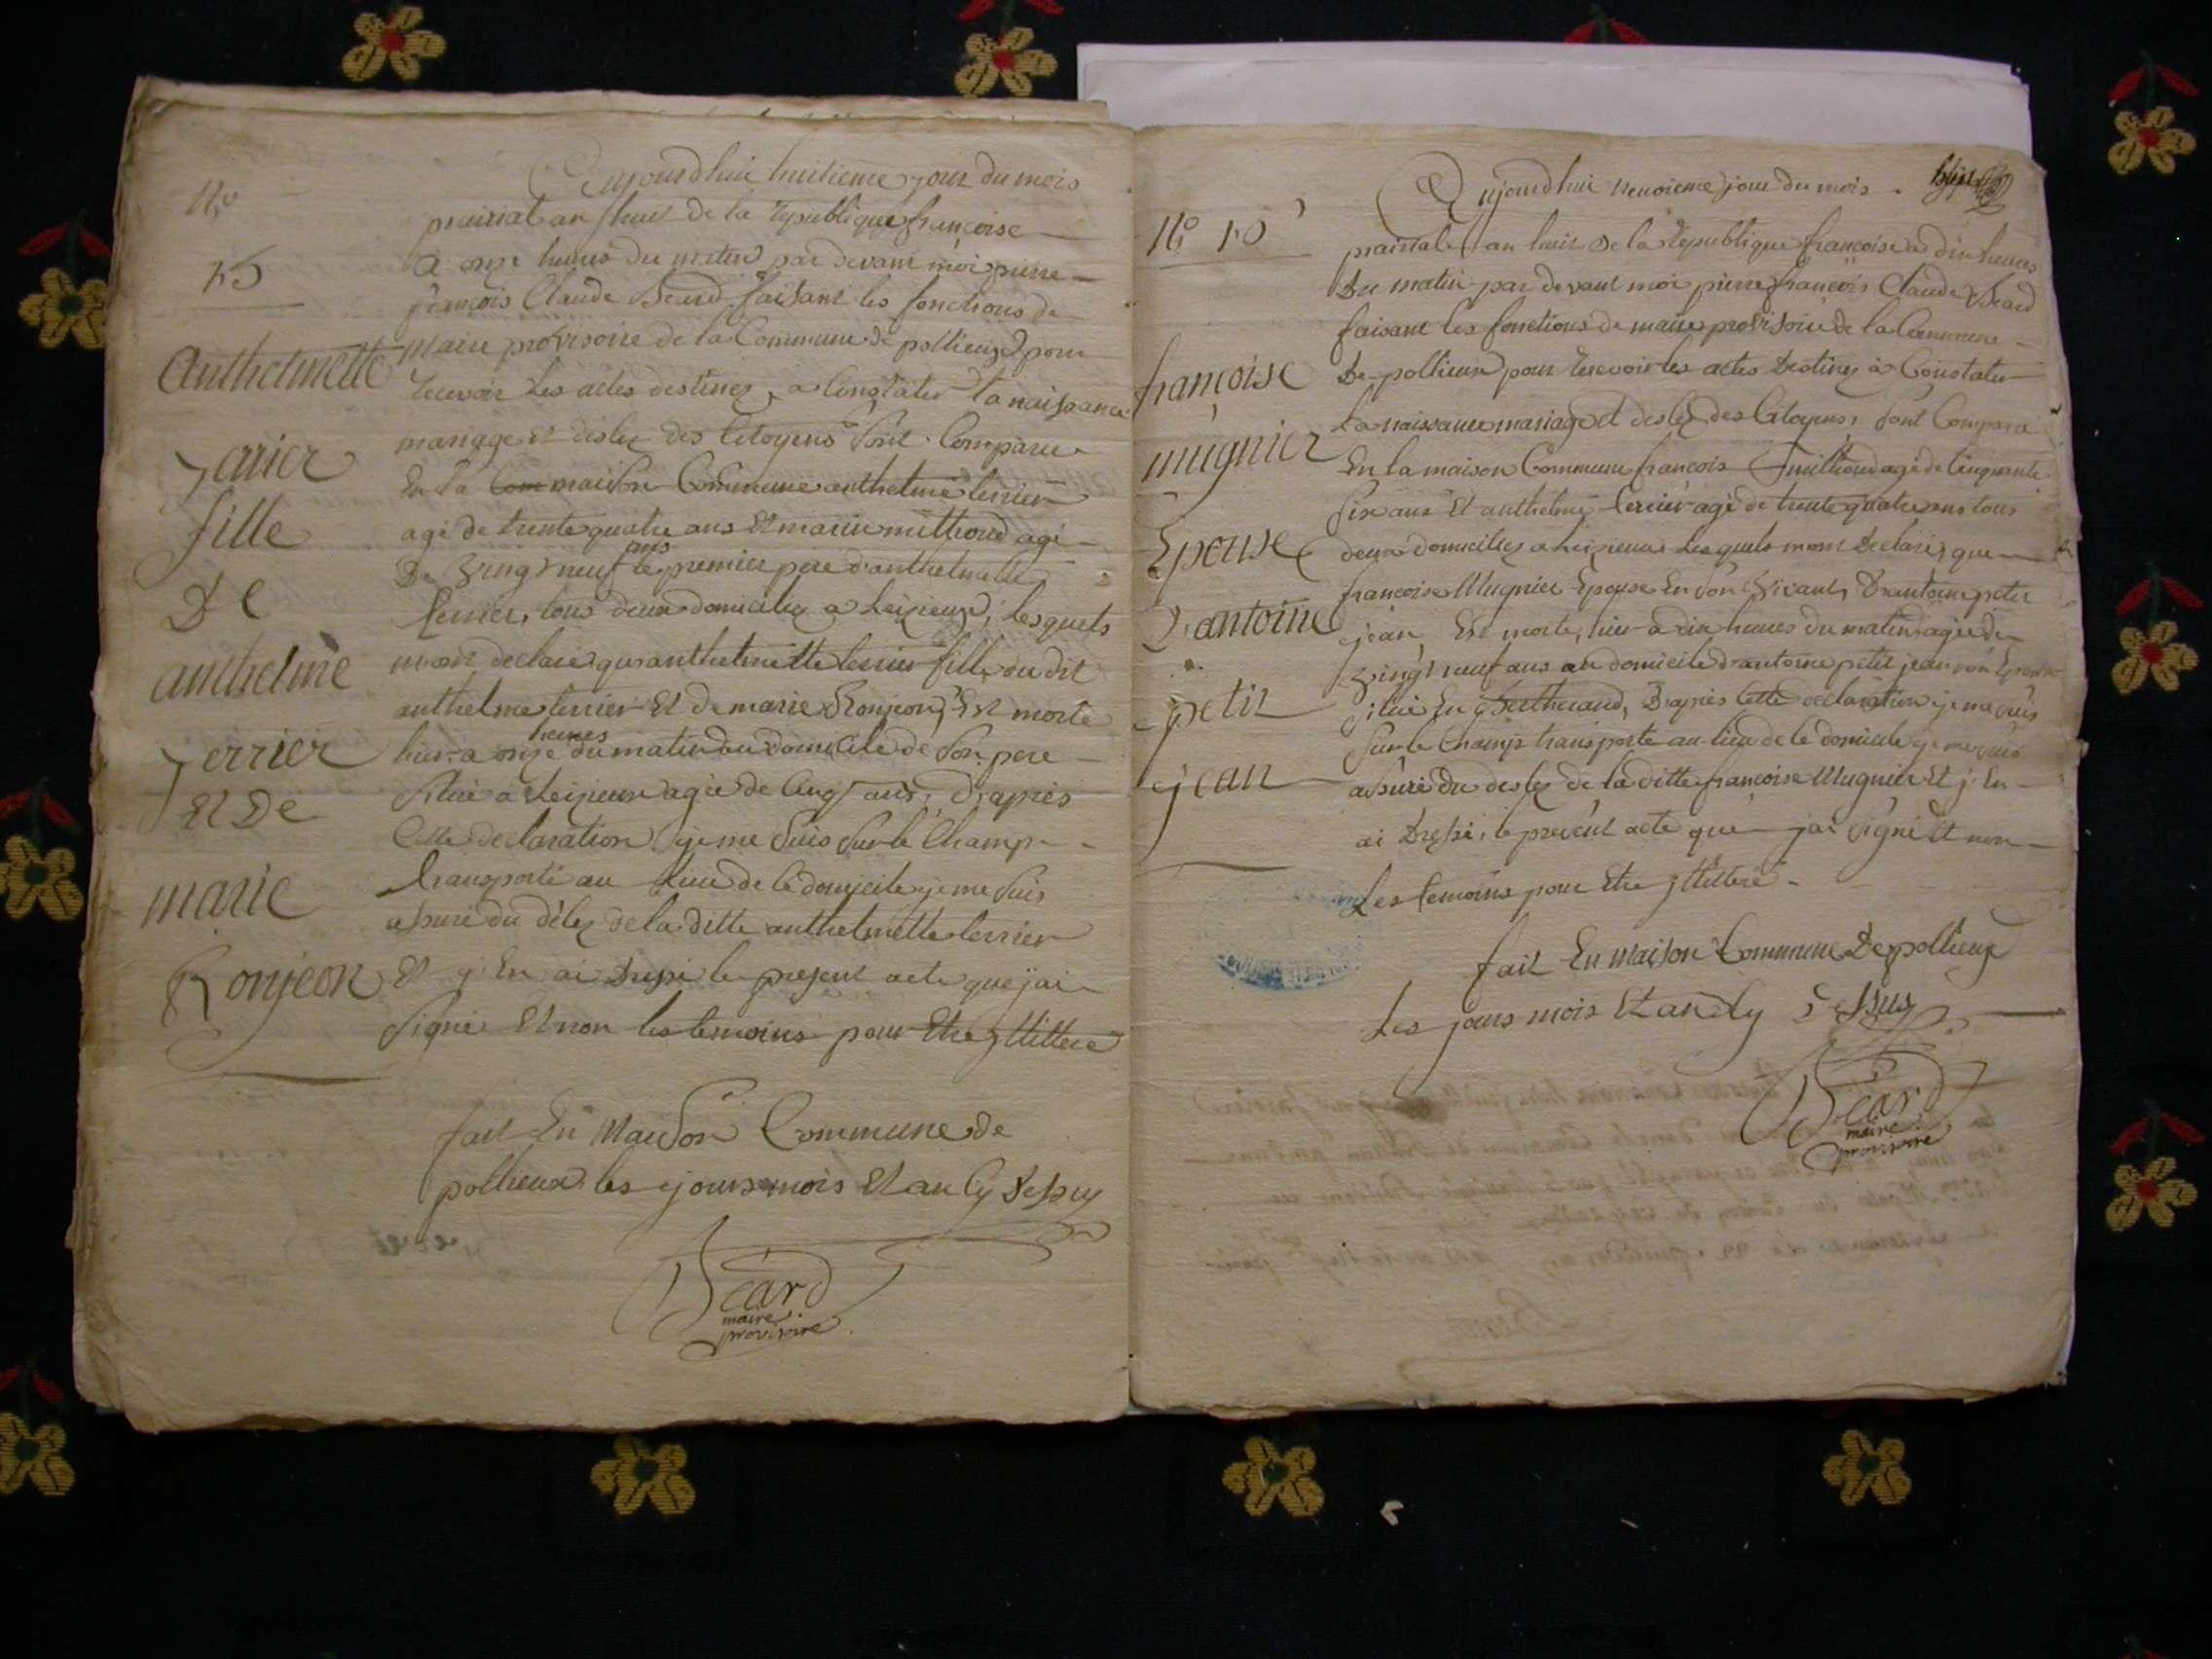 N.o
15
Anthelmette
Terrier
fille
De
anthelme
Terrier
Et De
marie
Ronjeon
Aujourdhui huitieme jour du mois
prairial an huit de la republique françoise
a onze heures du matin par devant moi pierre
françois Claude Béard faisant les fonctions de
maire provisoire de la Commune de pollieux pour
recevoir Les actes destinez a Constater la naissance
mariage et deslez des Citoyens Sont Comparu
En la Com maison Commune anthelme terrier
agé de trente quatre ans Et marin milliond agé
De Vingt neuf ans le premier pere d'anthelmette
terrier, tous deux domiciliez a Leizieux; lesquels
mont declaré que anthelmette terrier fille du dit
anthelme terrier Et de marie Ronjeon, Est morte
hier a onze heures du matin au domicile de Son pere
Situé a Leizieux agée de Cinq ans, D'apres
Cette declaration je me Suis Sur le Champ
transporté au Lieu de Ce domicile je me Suis
assuré du délez de la ditte anthelmette terrier
Et j'En ai Dressé le present acte que j'ai
Signé Et non les temoins pour Etre jllitteré
fait En Maison Commune de
pollieux les jours mois Et an Cy Dessus
Béard
maire
provisoire
N.o
françoise
mugnier
Epouse
D'antoine
petit
jean
Aujourdhui neuvieme jour du mois
prairial an huit De la Republique françoise a dix heures
Du matin par devant moi pierre françois Claude Béard
faisant les fonctions de maire provisoire de la Commune
De pollieux pour recevoir les actes Destinez à Constater
La naissance mariage et deslez des Citoyens, Sont Comparu
En la maison Commune francois milliond agé de Cinquante
Six ans Et anthelme terrier agé de trente quatre ans tous
deux domiciliez a Leizieux Lesquels mont Declaré que
françoise Mugnier Epouse En Son Vivant D'antoine petit
jean Est morte, hier a dix heures du matin agée de
Vingt neuf ans au domicile d'antoine petit jean Son Epoux
Situé En D'apres Cette declaration je me Suis
Sur le Champ transporté au lieu de Ce domicile je me Suis
assuré du deslez de la ditte françoise Mugnier Et j'En
ai Dressé le present acte que j'ai Signé Et non
Les temoins pour Etre jllitteré
fait En maison Commune De pollieux
Les jours mois Et an Cy Dessus
Béard
maire
provisoire